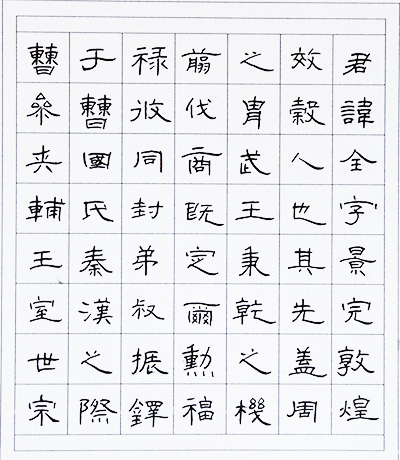 君諱全字景完敦煌
效穀人也其先盖周
之胄武王秉乾之機
翦伐商既定爾勳福
禄攸同封弟叔振鐸
于曹國氏秦漢之際
曹參夾輔王室世宗